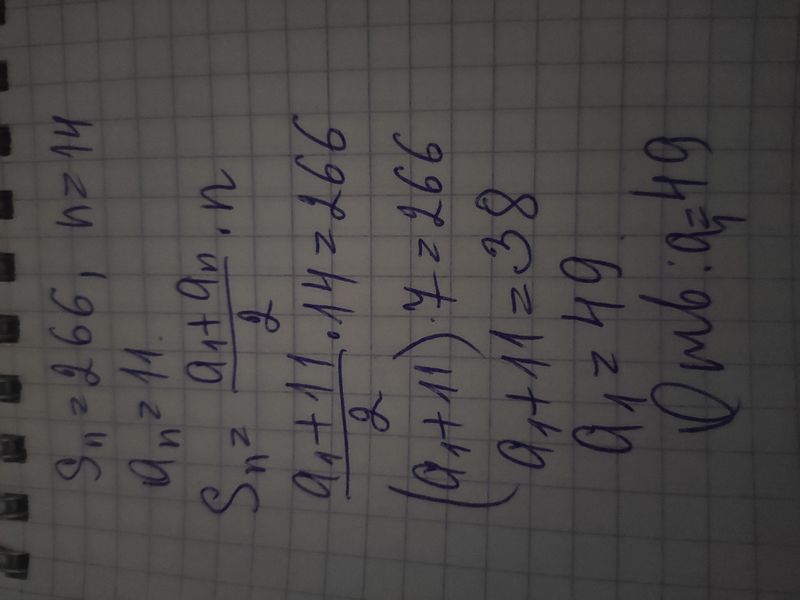 Sn = 266, n = 14
an = 11
Sn = (a1 + an)/2 · n
(a1 + 11)/2 · 14 = 266
(a1 + 11) · 7 = 266
a1 + 11 = 38
a1 = 49
Отв: a1 = 49